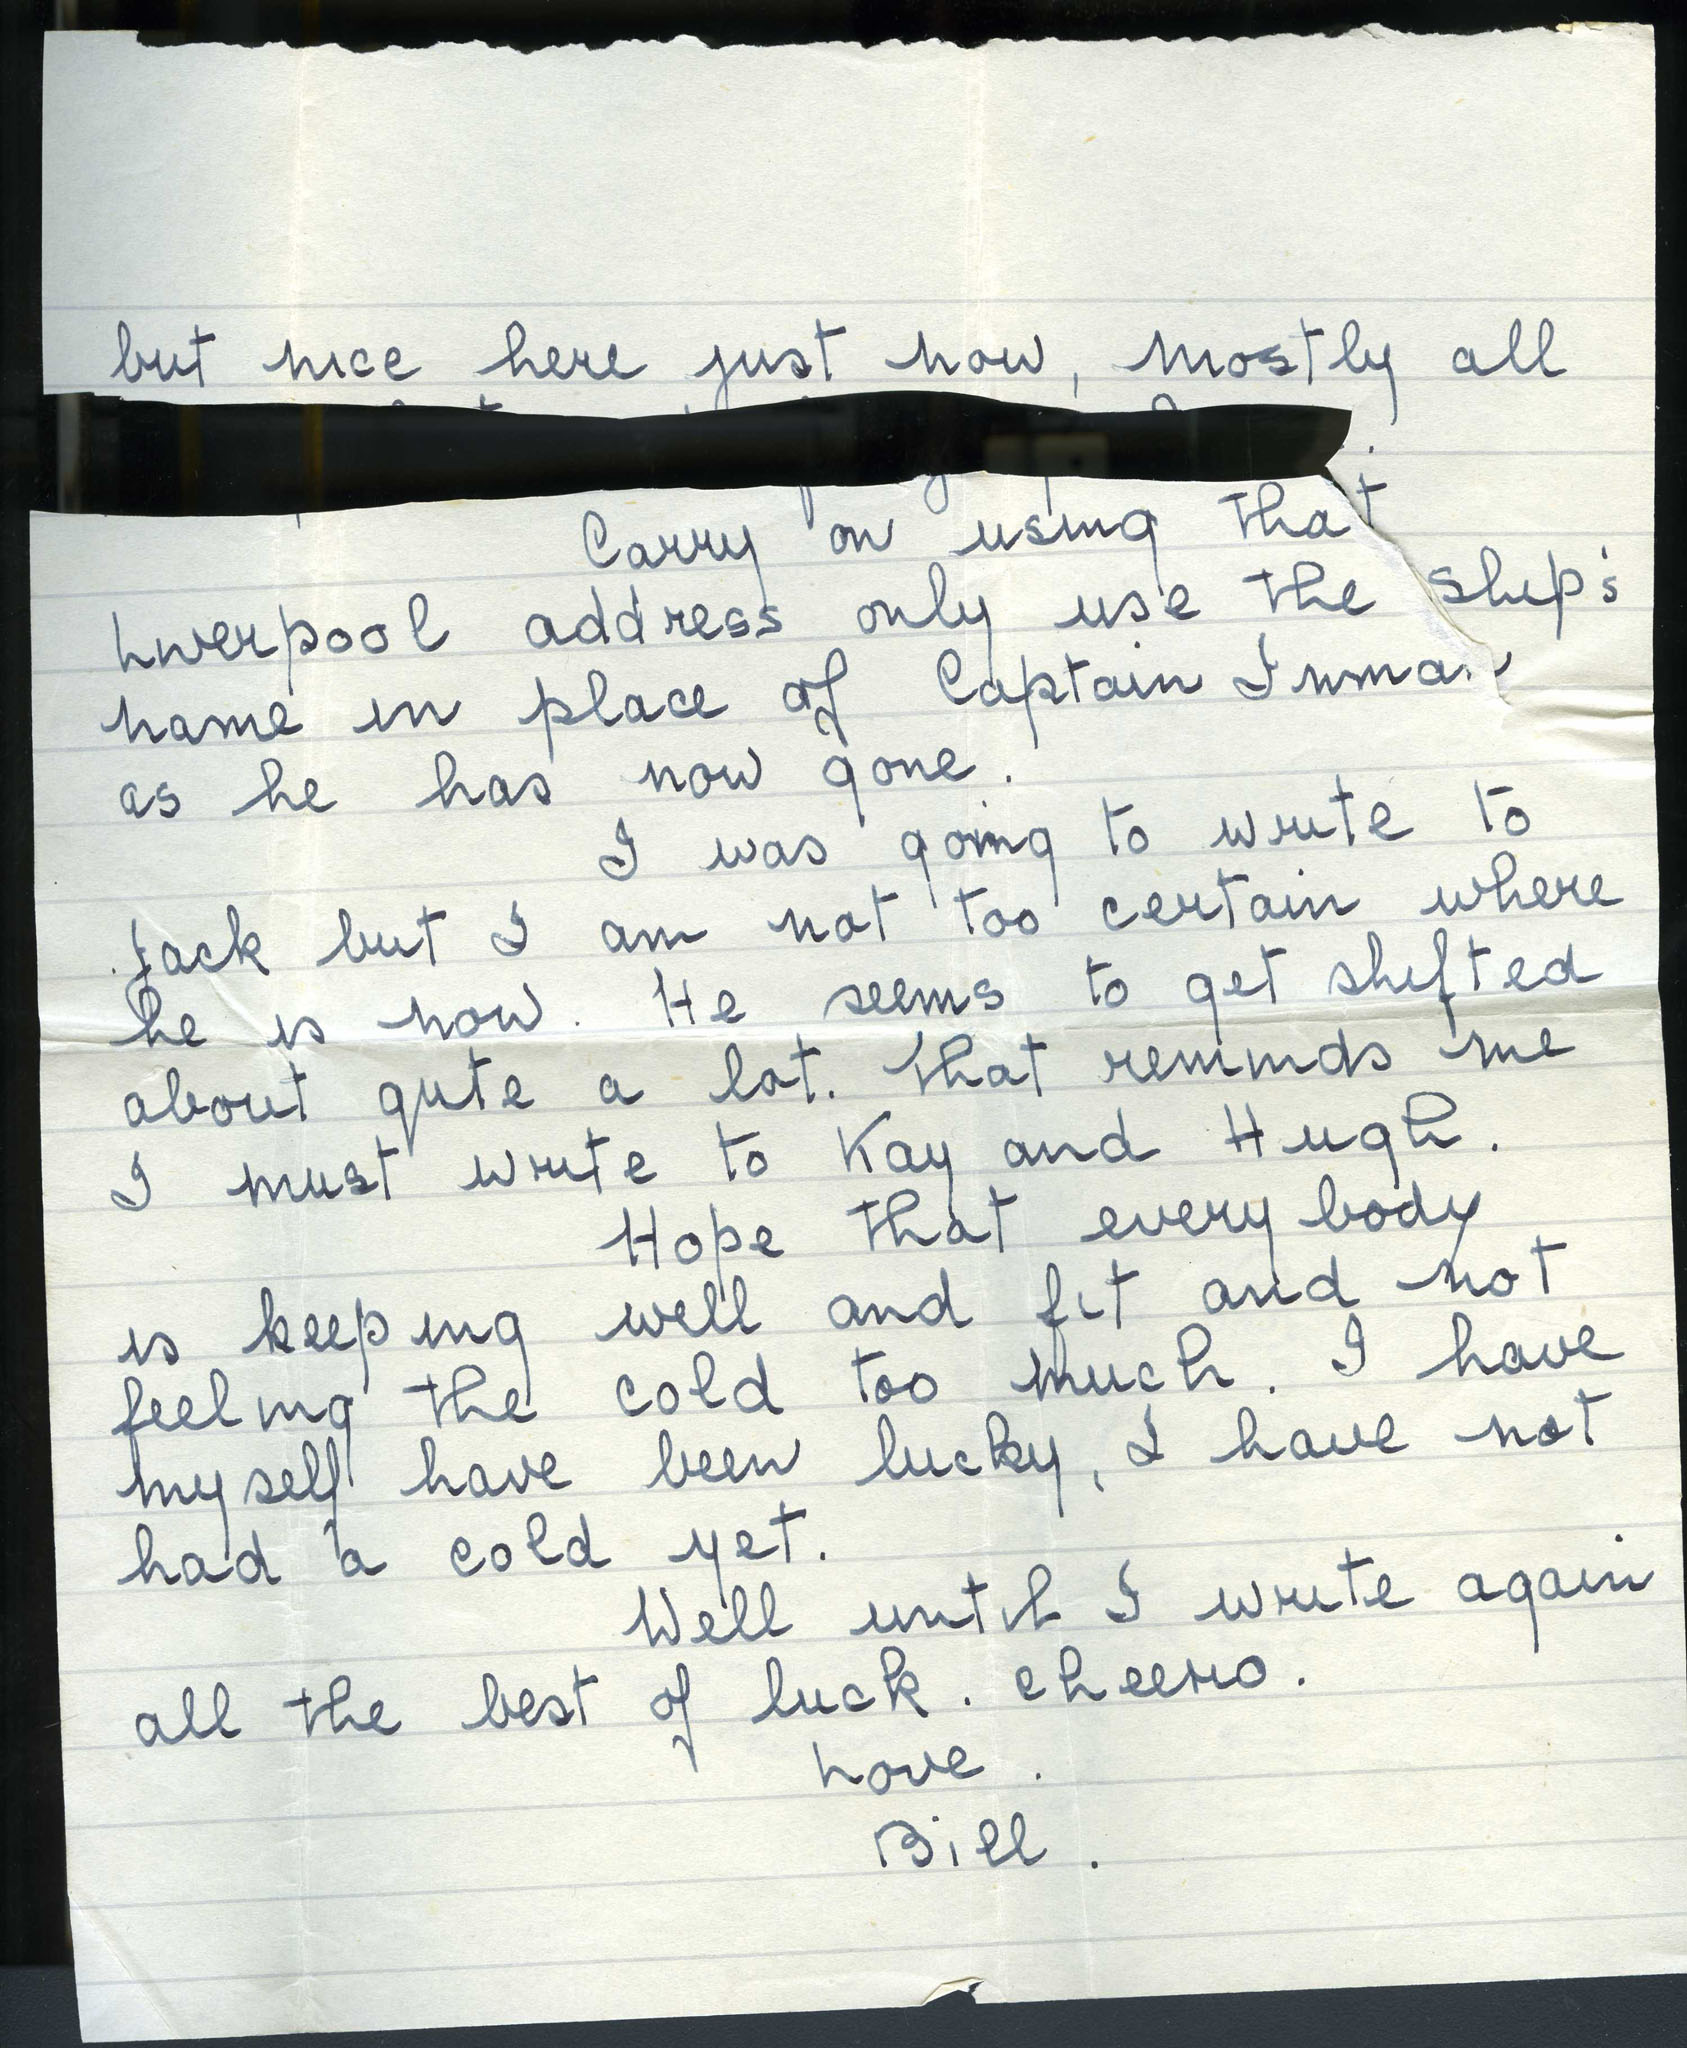 but nice here just now, mostly all
Carry on using that
Liverpool address only use the ship's
name in place of Captain Inman
as he has now gone.
I was going to write to
Jack but I am not too certain where
he is now. He seems to get shifted
about quite a lot. That reminds me
I must write to Kay and Hugh.
Hope that every body
is keeping well and fit and not
feeling the cold too much. I have
myself have been lucky, I have not
had a cold yet.
Well until I write again
all the best of luck. cheerio.
Love.
Bill.